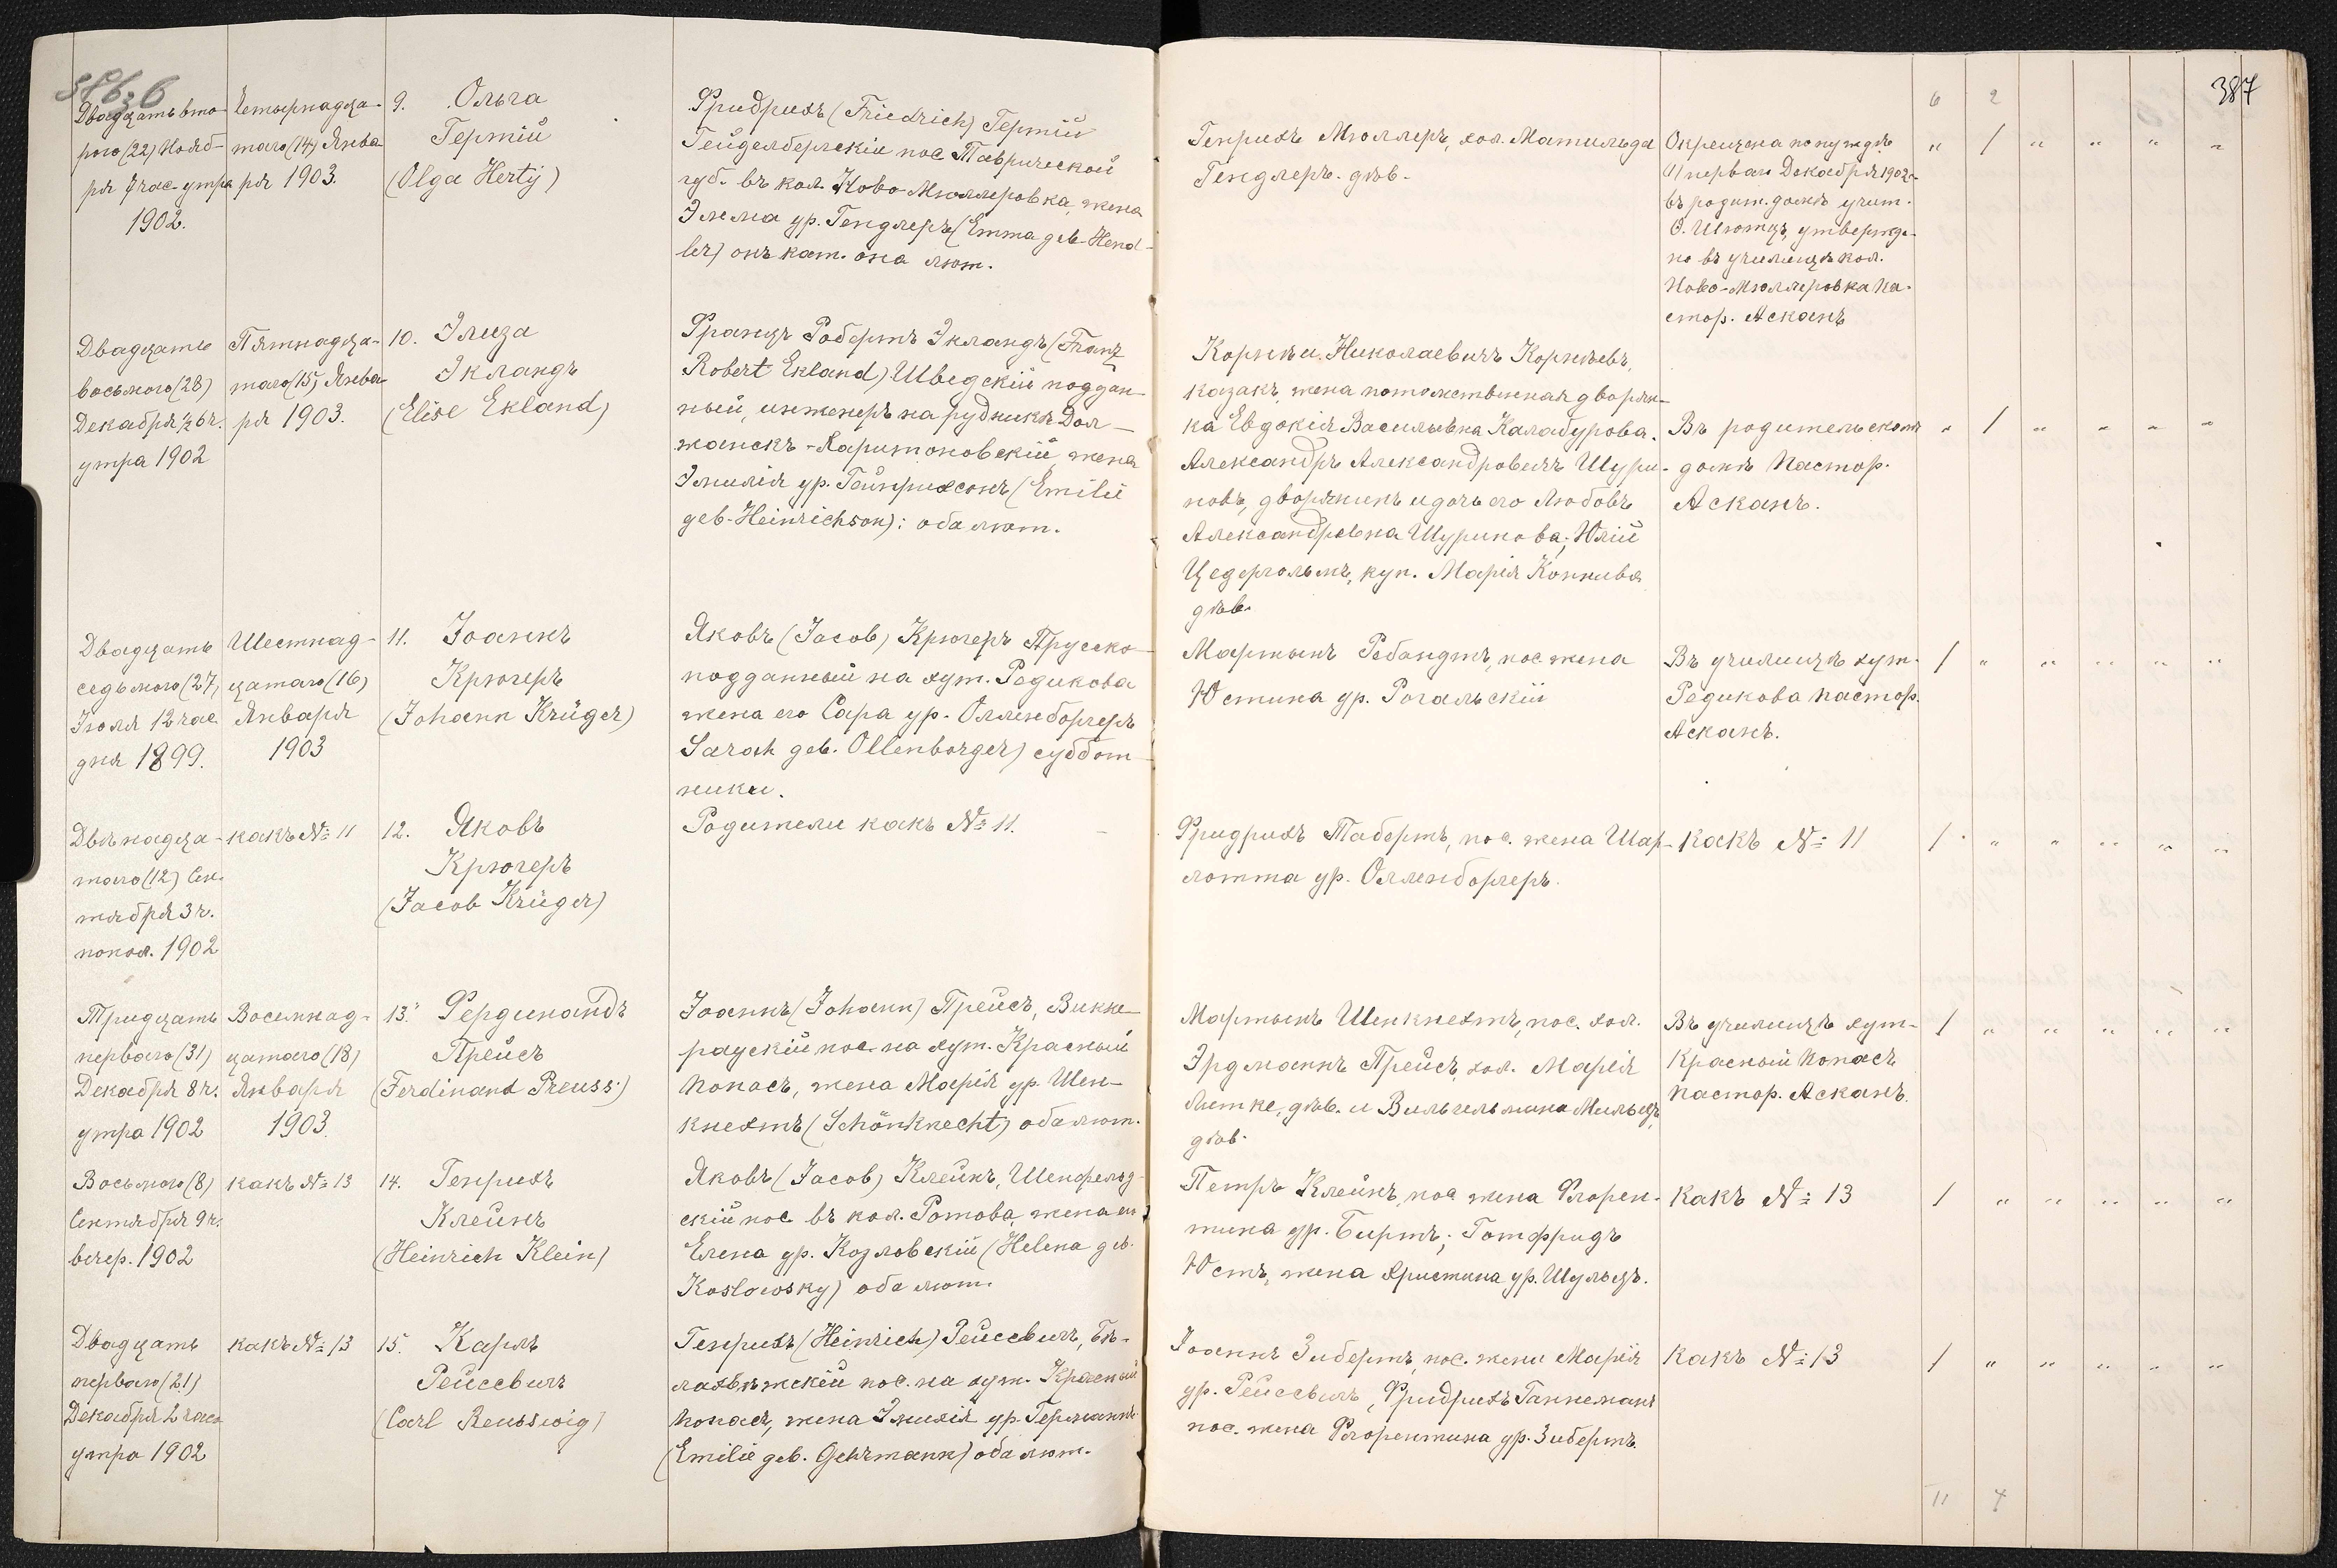 386 об
387
6 2
Двадцать вто-
рого (22) Нояб-
ря 7 час. утра
1902.
Четырнадца-
таго (14) Янва
ря 1903.
9. Ольга
Гертій
(Olga Herty)
Фридрихъ (Friedrich) Гертій
Гейделбергскій пос. Таврической
губ. въ кол. Ново-Мюллеровка, жена
Эмма ур. Гендлеръ (Emma geb. Hend-
ler) онъ кат. она лют.
Генрихъ Мюллеръ, хол. Матильда
Гендлеръ. дѣв.
Окрещена по нуждѣ
(1) перваго Декабря 1902
въ родит. домѣ учит.
О. Шютцъ, утвержде-
но въ училищѣ кол.
Ново-Мюллеровка Па-
стор. Асканъ
" 1 " " " "
Двадцать
восьмого (28)
Декабря ½6 ч.
утра 1902
Пятнадца-
таго (15) Янва
ря 1903.
10. Элиза
Экландъ
(Elise Ekland)
Францъ Робертъ Экландъ (Franz
Robert Ekland) Шведскій поддан-
ный, инженеръ на рудникѣ Дол-
жанскъ-Харитоновскій, жена
Эмилія ур. Гейнрихсонъ (Emilie
geb. Heinrichson): оба лют.
Корнѣй Николаевичъ Корнѣевъ,
казакъ, жена потомственная дворян-
ка Евдокія Васильевна Калабурова.
Александръ Александровичъ Шури-
новъ, дворянинъ и дочь его Любовь
Александровна Шуринова; Юлій
Цедергольмъ, куп. Марія Копнива
дѣв.
Въ родительскомъ
домѣ Пастор.
Асканъ.
" 1 " " " "
Двадцать
седьмого (27)
Іюля 12 час
дня 1899.
Шестнад-
цатаго (16)
Января
1903
11. Іоаннъ
Крюгеръ
(Johann Krüger)
Яковъ (Jacob) Крюгеръ Прусско-
подданный на хут. Редикова
жена его Сара ур. Олленборгеръ
Sarah geb. Ollenborger) суббот-
ники.
Мартынъ Ребандтъ, пос. жена
Юстина ур. Рогальскій
Въ училищѣ хут.
Редикова Пастор.
Асканъ.
1 " " " " "
Двѣнадца-
таго (12) Сен-
тября 3 ч.
попол. 1902
какъ № 11
12. Яковъ
Крюгеръ
(Jacob Krüger)
Родители какъ № 11.
Фридрихъ Табертъ, пос. жена Шар-
лотта ур. Олленборгеръ.
какъ № 11
1 " " " " "
Тридцать
перваго (31)
Декабря 8 ч.
утра 1902
Восемнад-
цатаго (18)
Января
1903.
13. Фердинандъ
Прейсъ
(Ferdinand Preuss)
Іоаннъ (Johann) Прейсъ, Викке-
раускій пос. на хут. Красный
Попасъ, жена Марія ур. Шен-
кнехтъ (Schönknecht) оба лют.
Мартынъ Шенкнехтъ, пос. хол.
Эрдманнъ Прейсъ, хол. Марія
Литке, дѣв. и Вильгельмина Мильцъ,
дѣв.
Въ училищѣ хут-
Красный Попасъ
Пастор. Асканъ.
1 " " " " "
Восьмого (8)
Сентября 9 ч.
вечер. 1902
какъ № 13
14. Генрихъ
Клейнъ
(Heinrich Klein)
Яковъ (Jacob) Клейнъ, Шенфельд-
скій пос. въ кол. Ротова, жена его
Елена ур. Козловскій (Helena geb.
Koslowsky) оба лют.
Петръ Клейнъ, пос. жена Флорен-
тина ур. Биртъ; Готфридъ
Юстъ, жена Христина ур. Шульцъ.
какъ № 13
1 " " " " "
Двадцать
перваго (21)
Декабря 2 часа
утра 1902
какъ № 13
15. Карлъ
Рейссвигъ
(Carl Reusswig)
Генрихъ (Heinrich) Рейссвигъ, Бѣ-
ловѣжскій пос. на хут. Красный
Попасъ, жена Эмилія ур. Германнъ
(Emilie geb. Gehrmann) оба лют.
Іоаннъ Зибертъ, пос. жена Марія
ур. Рейссвигъ, Фридрихъ Ганнеманъ
пос. жена Флорентина ур. Зибертъ.
какъ № 13
1 " " " " "
11 4